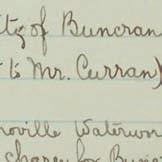 of Buncran
to Mr. Curran)
roville Waterwor
charge for Bun